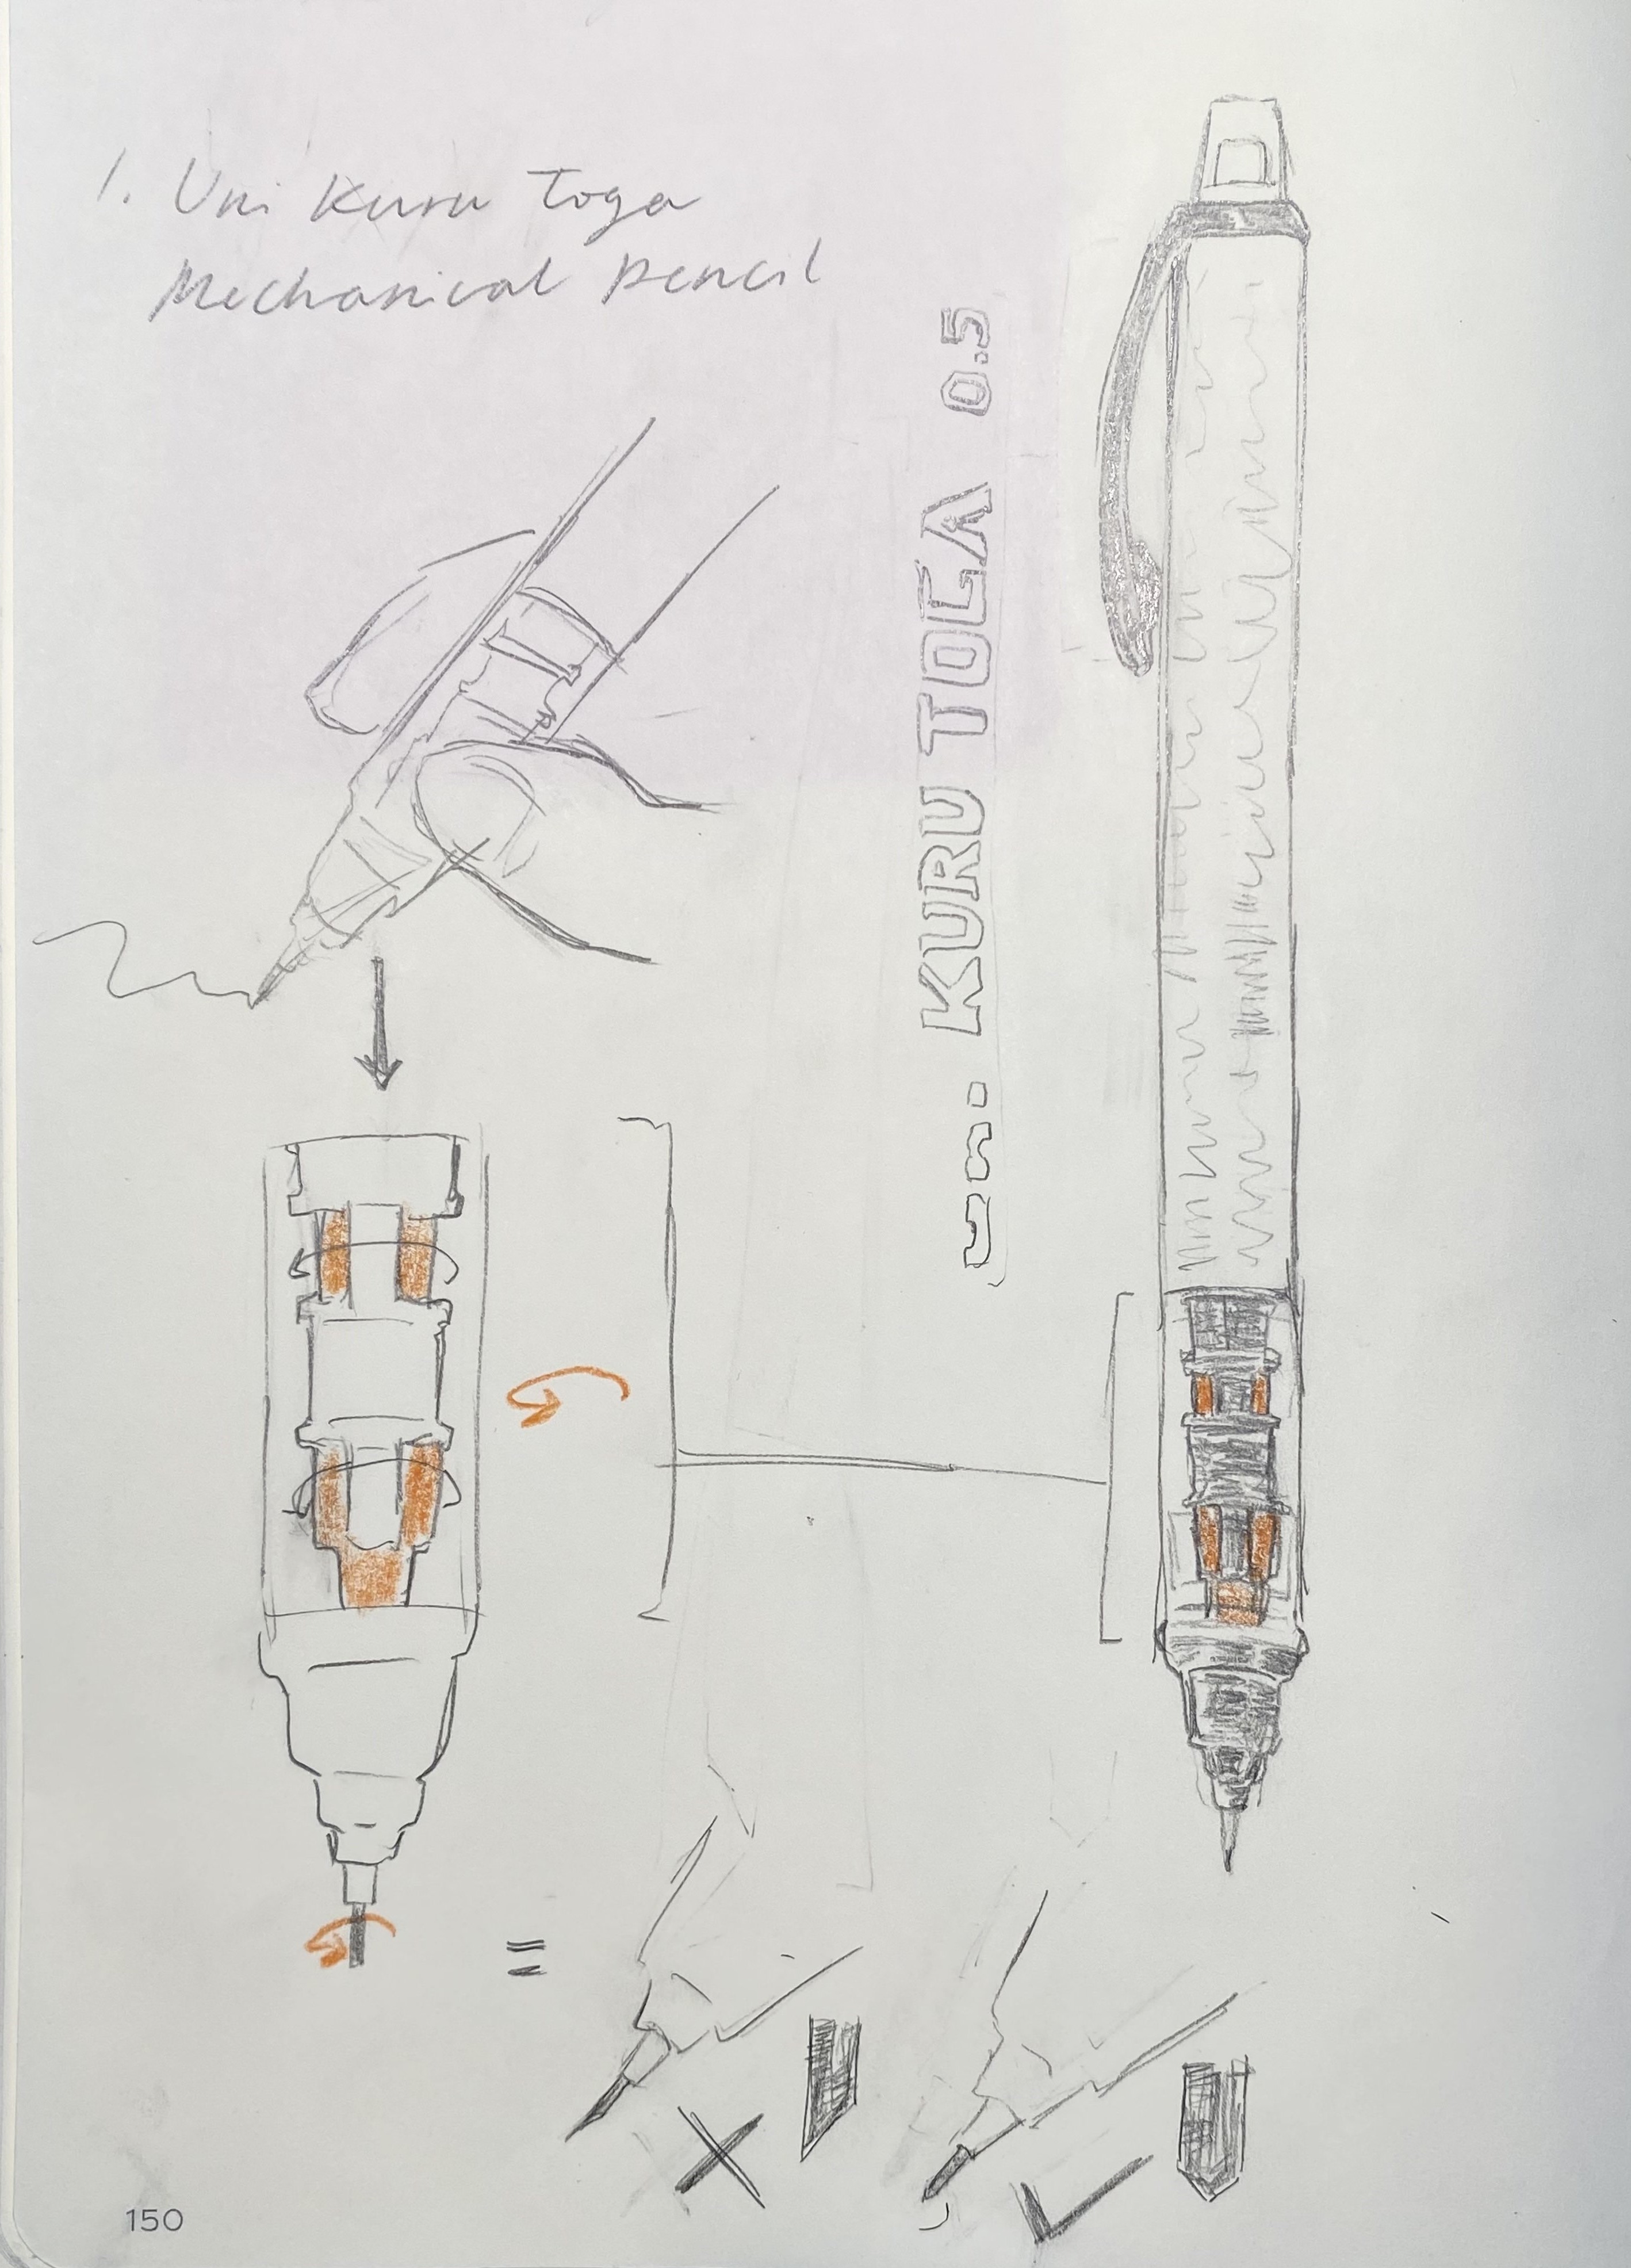 1. Uni Kuru Toga
Mechanical Pencil
uni KURU TOGA 0.5
=
150